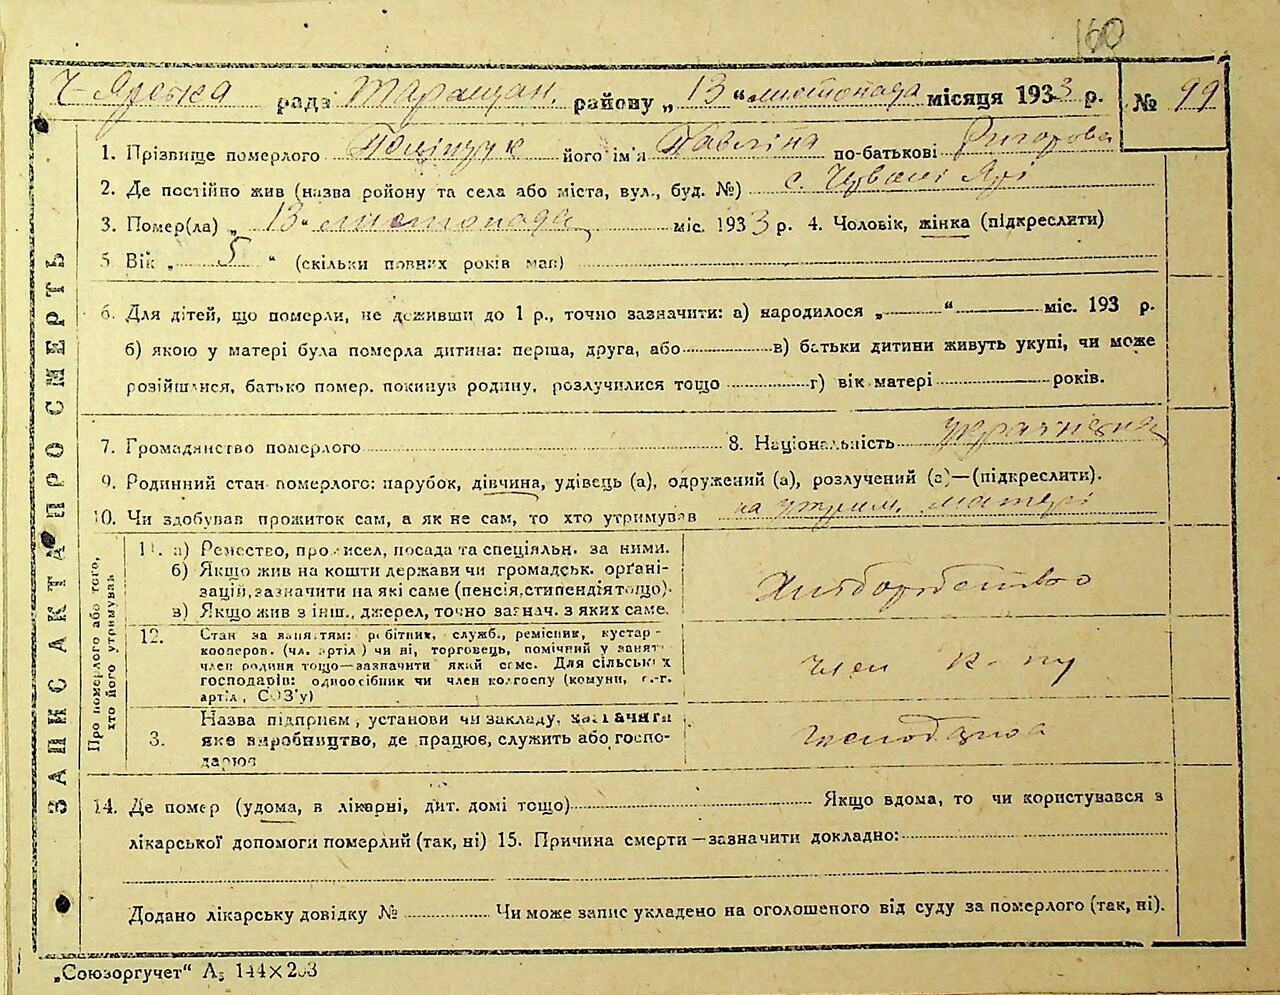 160
Ч-Ярська рада Таращан. району „ 13 “ листопада місяця 1933 р. № 99
1. Прізвище померлого Поліщук його ім'я Павліна по-батькові Григорова
2. Де постійно жив (назва ройону та села або міста, вул., буд. №) с. Червоні Яри
3. Помер(ла) „ 13 “ листопада міс. 1933 р. 4. Чоловік, жінка (підкреслити)
5. Вік „ 5 “ (скільки повних років мав)
ЗАПИС АКТА ПРО СМЕРТЬ
6. Для дітей, що померли, не доживши до 1 р., точно зазначити: а) народилося „ “ міс. 193 р.
б) якою у матері була померла дитина: перша, друга, або в) батьки дитини живуть укупі, чи може
розійшлися, батько помер. покинув родину, розлучилися тощо г) вік матері років.
7. Громадянство померлого 8. Національність українська
9. Родинний стан померлого: парубок, дівчина, удівець (а), одружений (а), розлучений (а)—(підкреслити).
10. Чи здобував прожиток сам, а як не сам, то хто утримував на утрим. матері
Про померлого або того,
хто його утримував
11. а) Ремество, промисел, посада та спеціяльн. за ними.
б) Якщо жив на кошти держави чи громадськ. орґані-
зацій, зазначити на які саме (пенсія, стипендія тощо).
в) Якщо жив з інш., джерел, точно зазнач. з яких саме.
Хліборобство
12. Стан за заняттям: робітник, служб., ремісник, кустар-
кооперов. (чл. артіл) чи ні, торговець, помічний у занят.
член родини тощо—зазначити який саме. Для сільських
господарів: одноосібник чи член колгоспу (комуни, с.-г.
артіл, СОЗ'у)
член к-пу
3. Назва підприєм, установи чи закладу, зазначити
яке виробництво, де працює, служить або госпо-
дарює
14. Де помер (удома, в лікарні, дит. домі тощо) Якщо вдома, то чи користувався з
лікарської допомоги померлий (так, ні) 15. Причина смерти—зазначити докладно:
Додано лікарську довідку № Чи може запис укладено на оголошеного від суду за померлого (так, ні).
„Союзоргучет“ А5 144×203